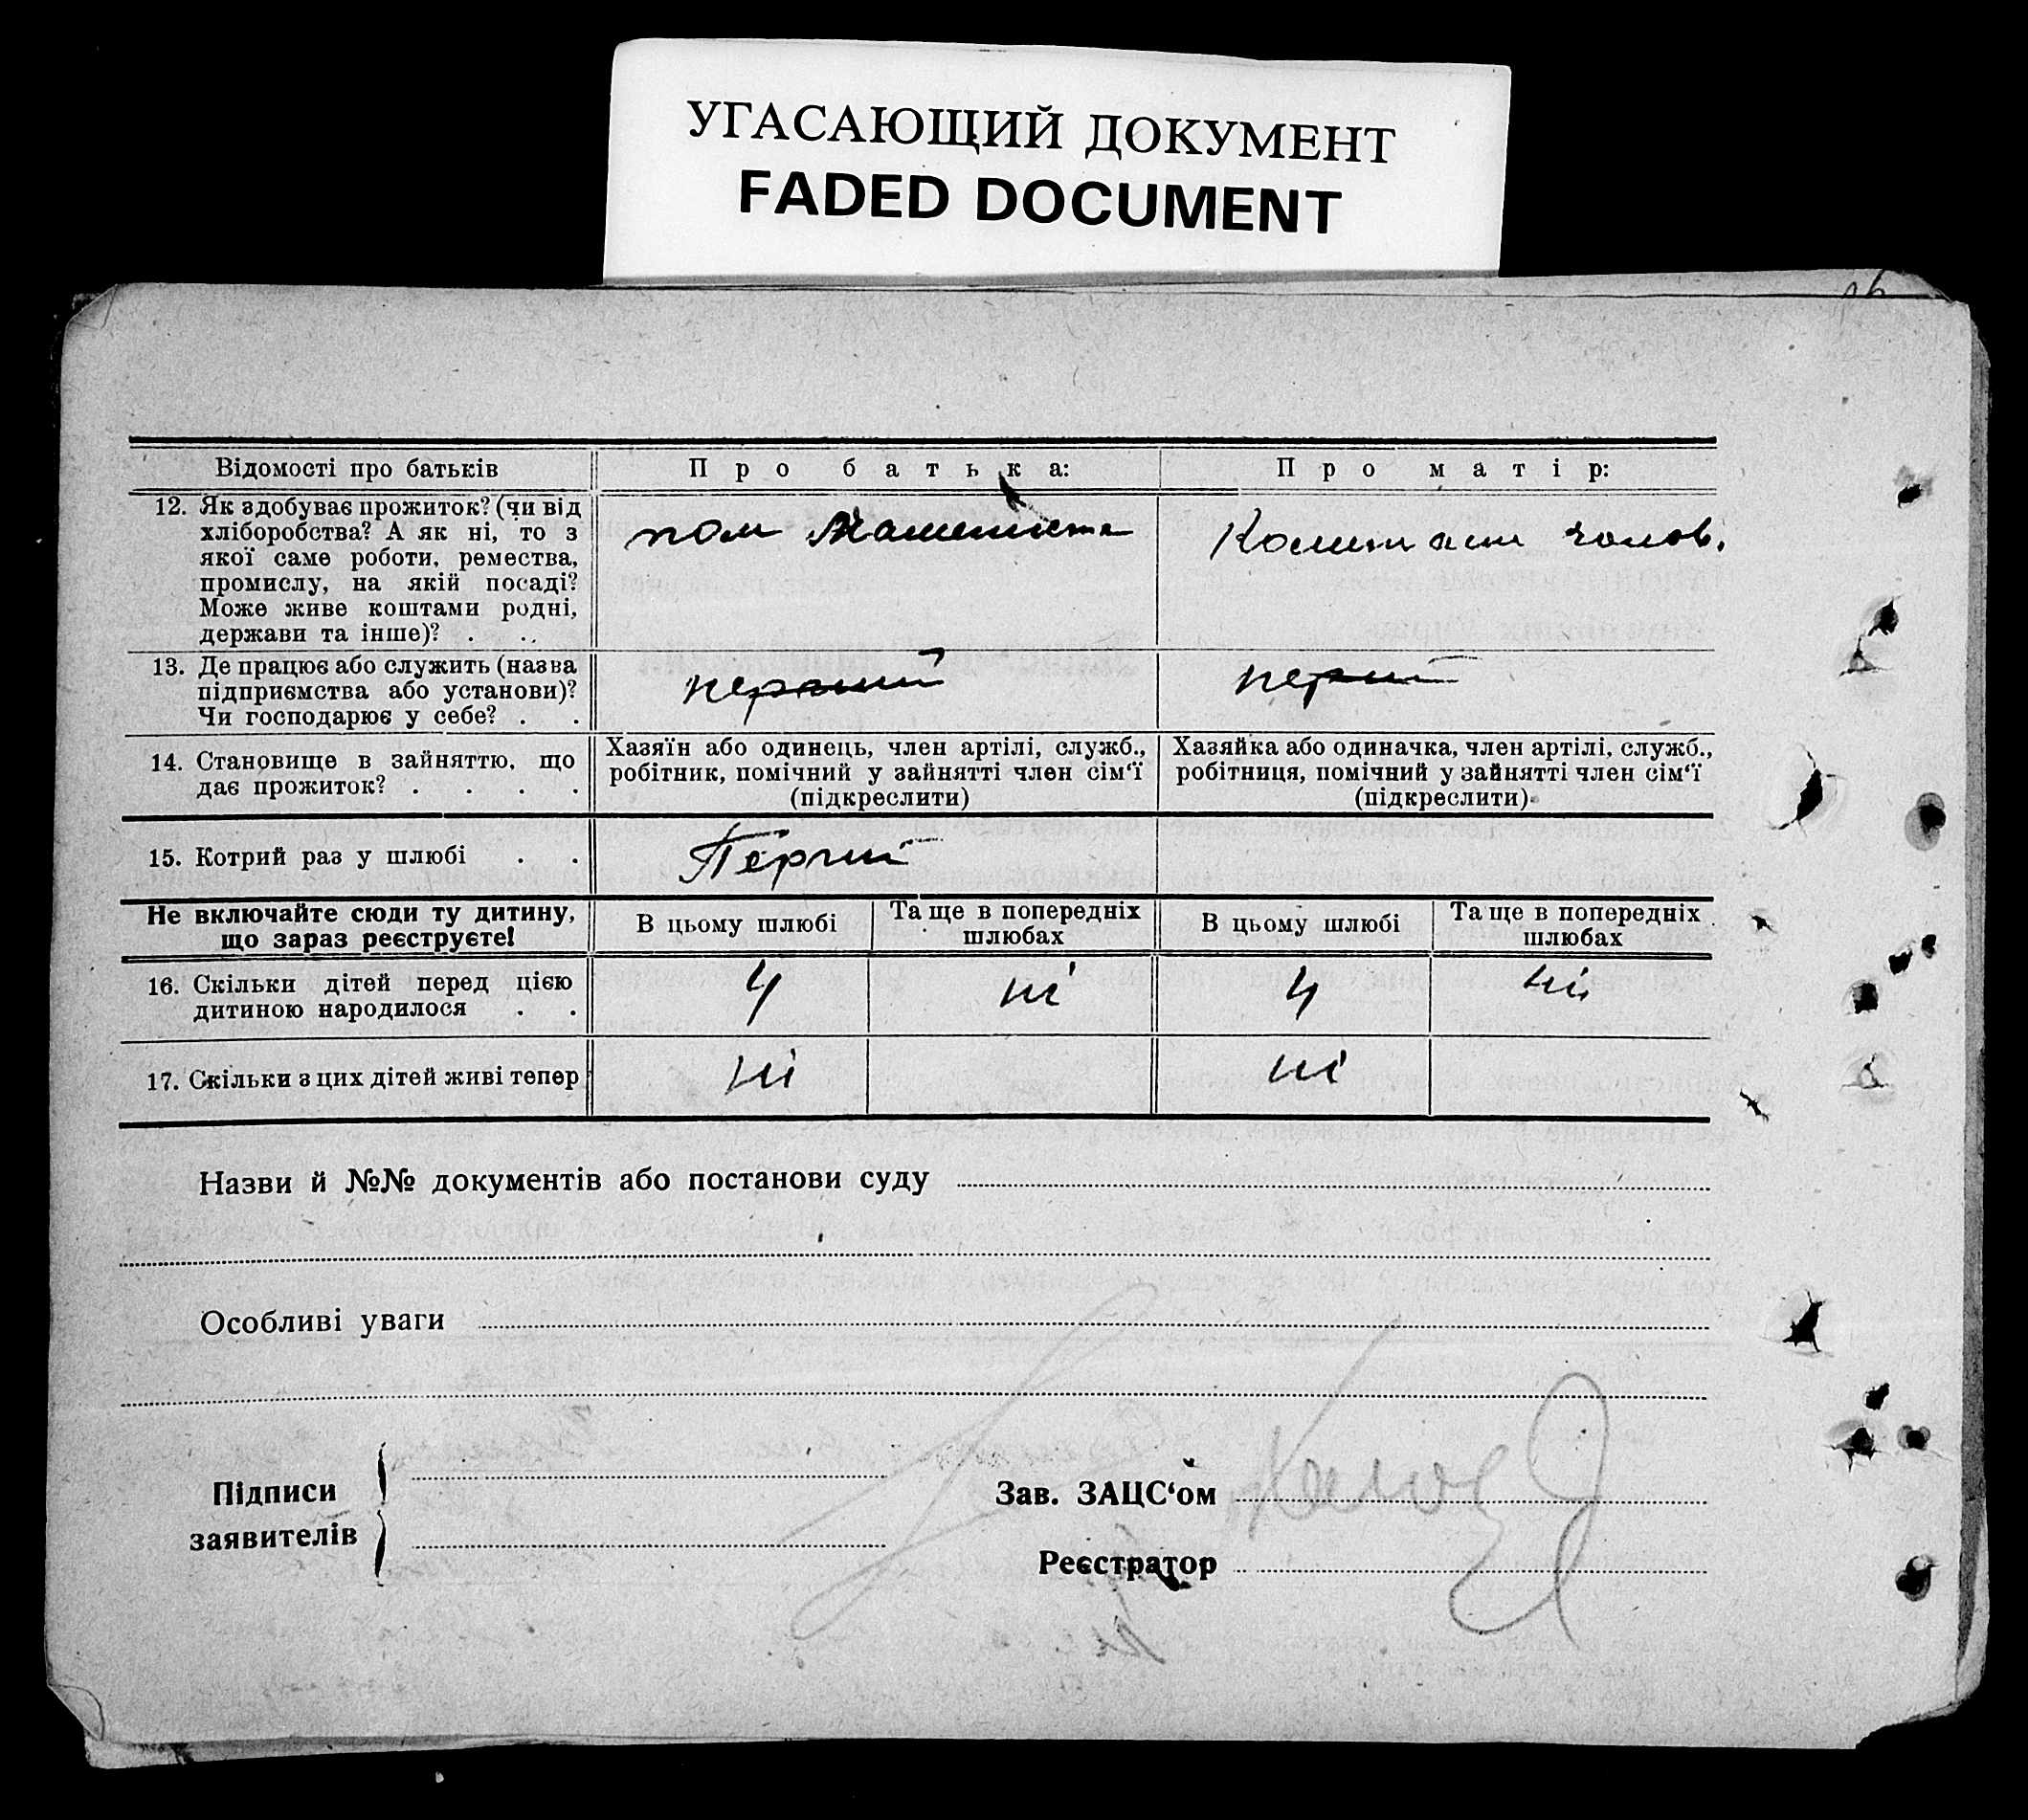 УГАСАЮЩИЙ ДОКУМЕНТ
FADED DOCUMENT
Відомості про батьків
Про батька:
Про матір:
12. Як здобуває прожиток? (чи від
хліборобства? А як ні, то з
якої саме роботи, ремества,
промислу, на якій посаді?
Може живе коштами родні,
держави та інше)? . .
пом Машениста
Коштами чолов.
13. Де працює або служить (назва
підприємства або установи)?
Чи господарює у себе? . .
перший
перший
14. Становище в зайняттю, що
дає прожиток? . . . .
Хазяїн або одинець, член артілі, служб.,
робітник, помічний у зайнятті член сім‘ї
(підкреслити)
Хазяйка або одиначка, член артілі, служб.,
робітниця, помічний у зайнятті член сім‘ї
(підкреслити)
15. Котрий раз у шлюбі . .
Перший
Не включайте сюди ту дитину,
що зараз реєструєте!
В цьому шлюбі
Та ще в попередніх
шлюбах
В цьому шлюбі
Та ще в попередніх
шлюбах
16. Скільки дітей перед цією
дитиною народилося . .
4
ні
4
ні
17. Скільки з цих дітей живі тепер
ні
ні
Назви й №№ документів або постанови суду
Особливі уваги
Підписи
заявителів
Зав. ЗАЦС‘ом
Реєстратор